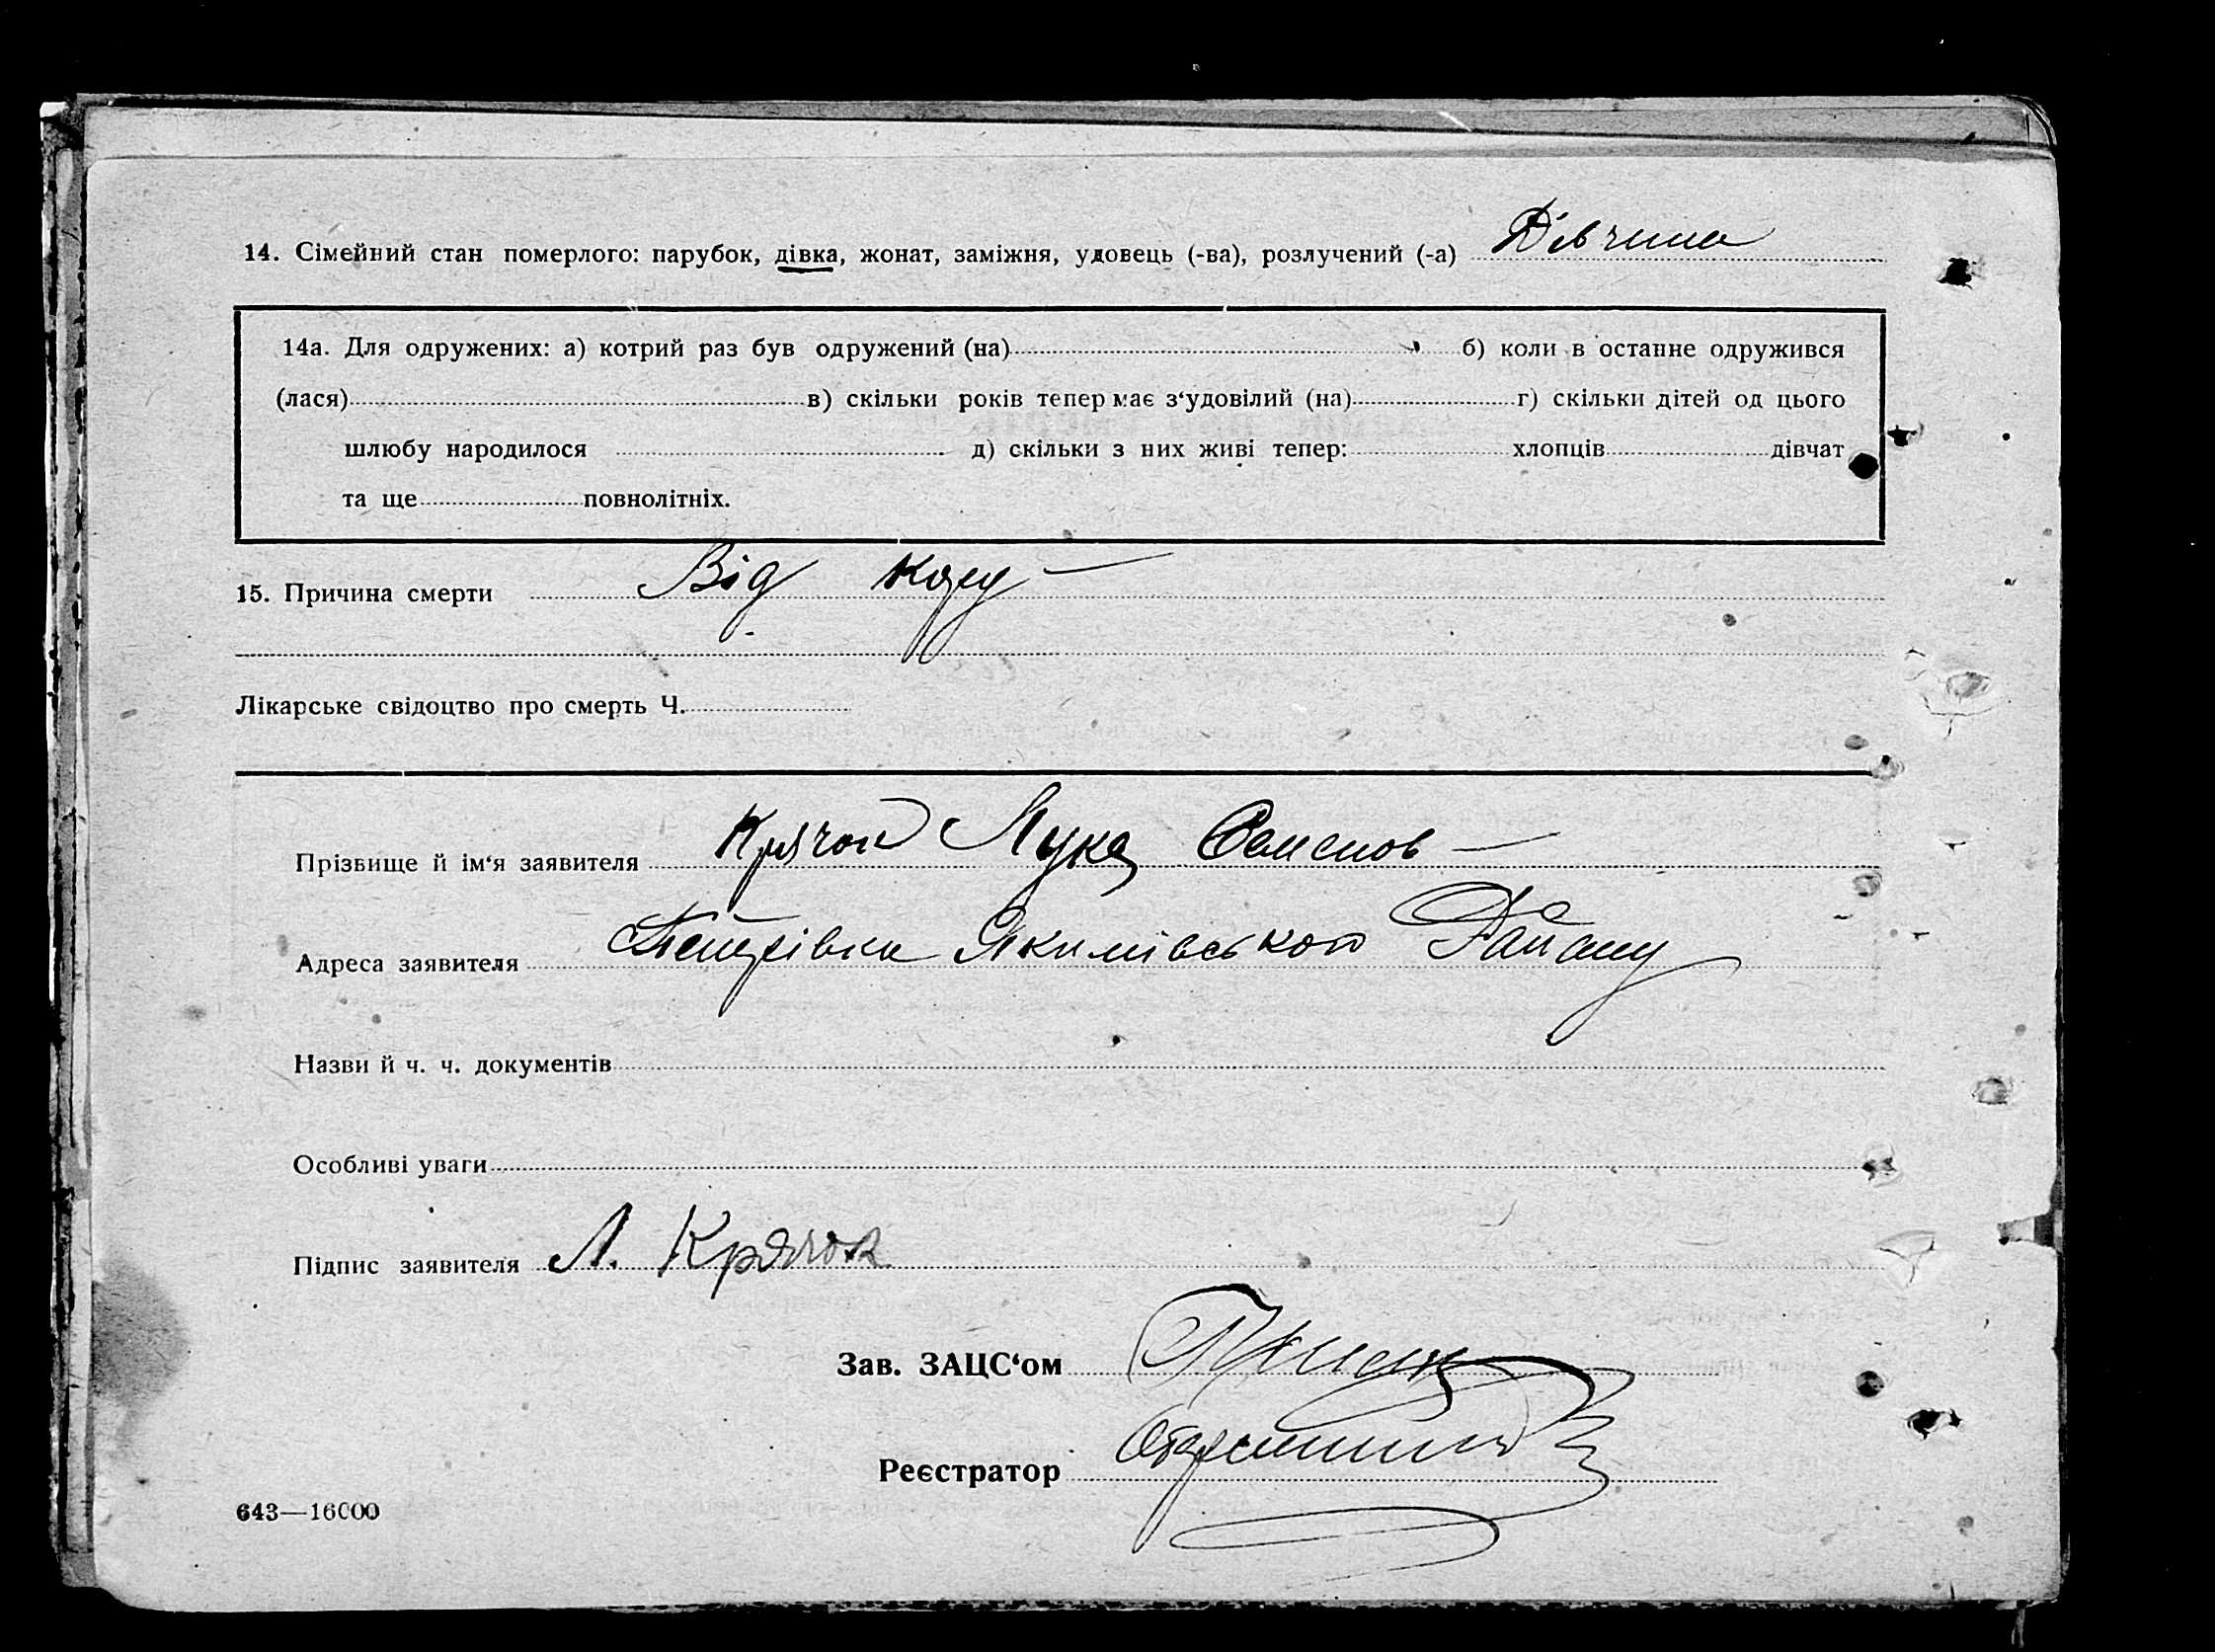 14. Сімейний стан померлого: парубок, дівка, жонат, заміжня, удовець (-ва), розлучений (-а) Дівчина
14а. Для одружених: а) котрий раз був одружений (на) б) коли в останнє одружився
(лася) в) скільки років тепер має з‘удовілий (на) г) скільки дітей од цього
шлюбу народилося д) скільки з них живі тепер: хлопців дівчат
та ще повнолітніх.
15. Причина смерти Від кору
Лікарське свідоцтво про смерть Ч.
Прізвище й ім‘я заявителя Крячок Лука Семенов
Адреса заявителя Петрівка Якимівського Району
Назви й ч. ч. документів
Особливі уваги
Підпис заявителя Л. Крячок
Зав. ЗАЦС‘ом
Реєстратор
643—16000